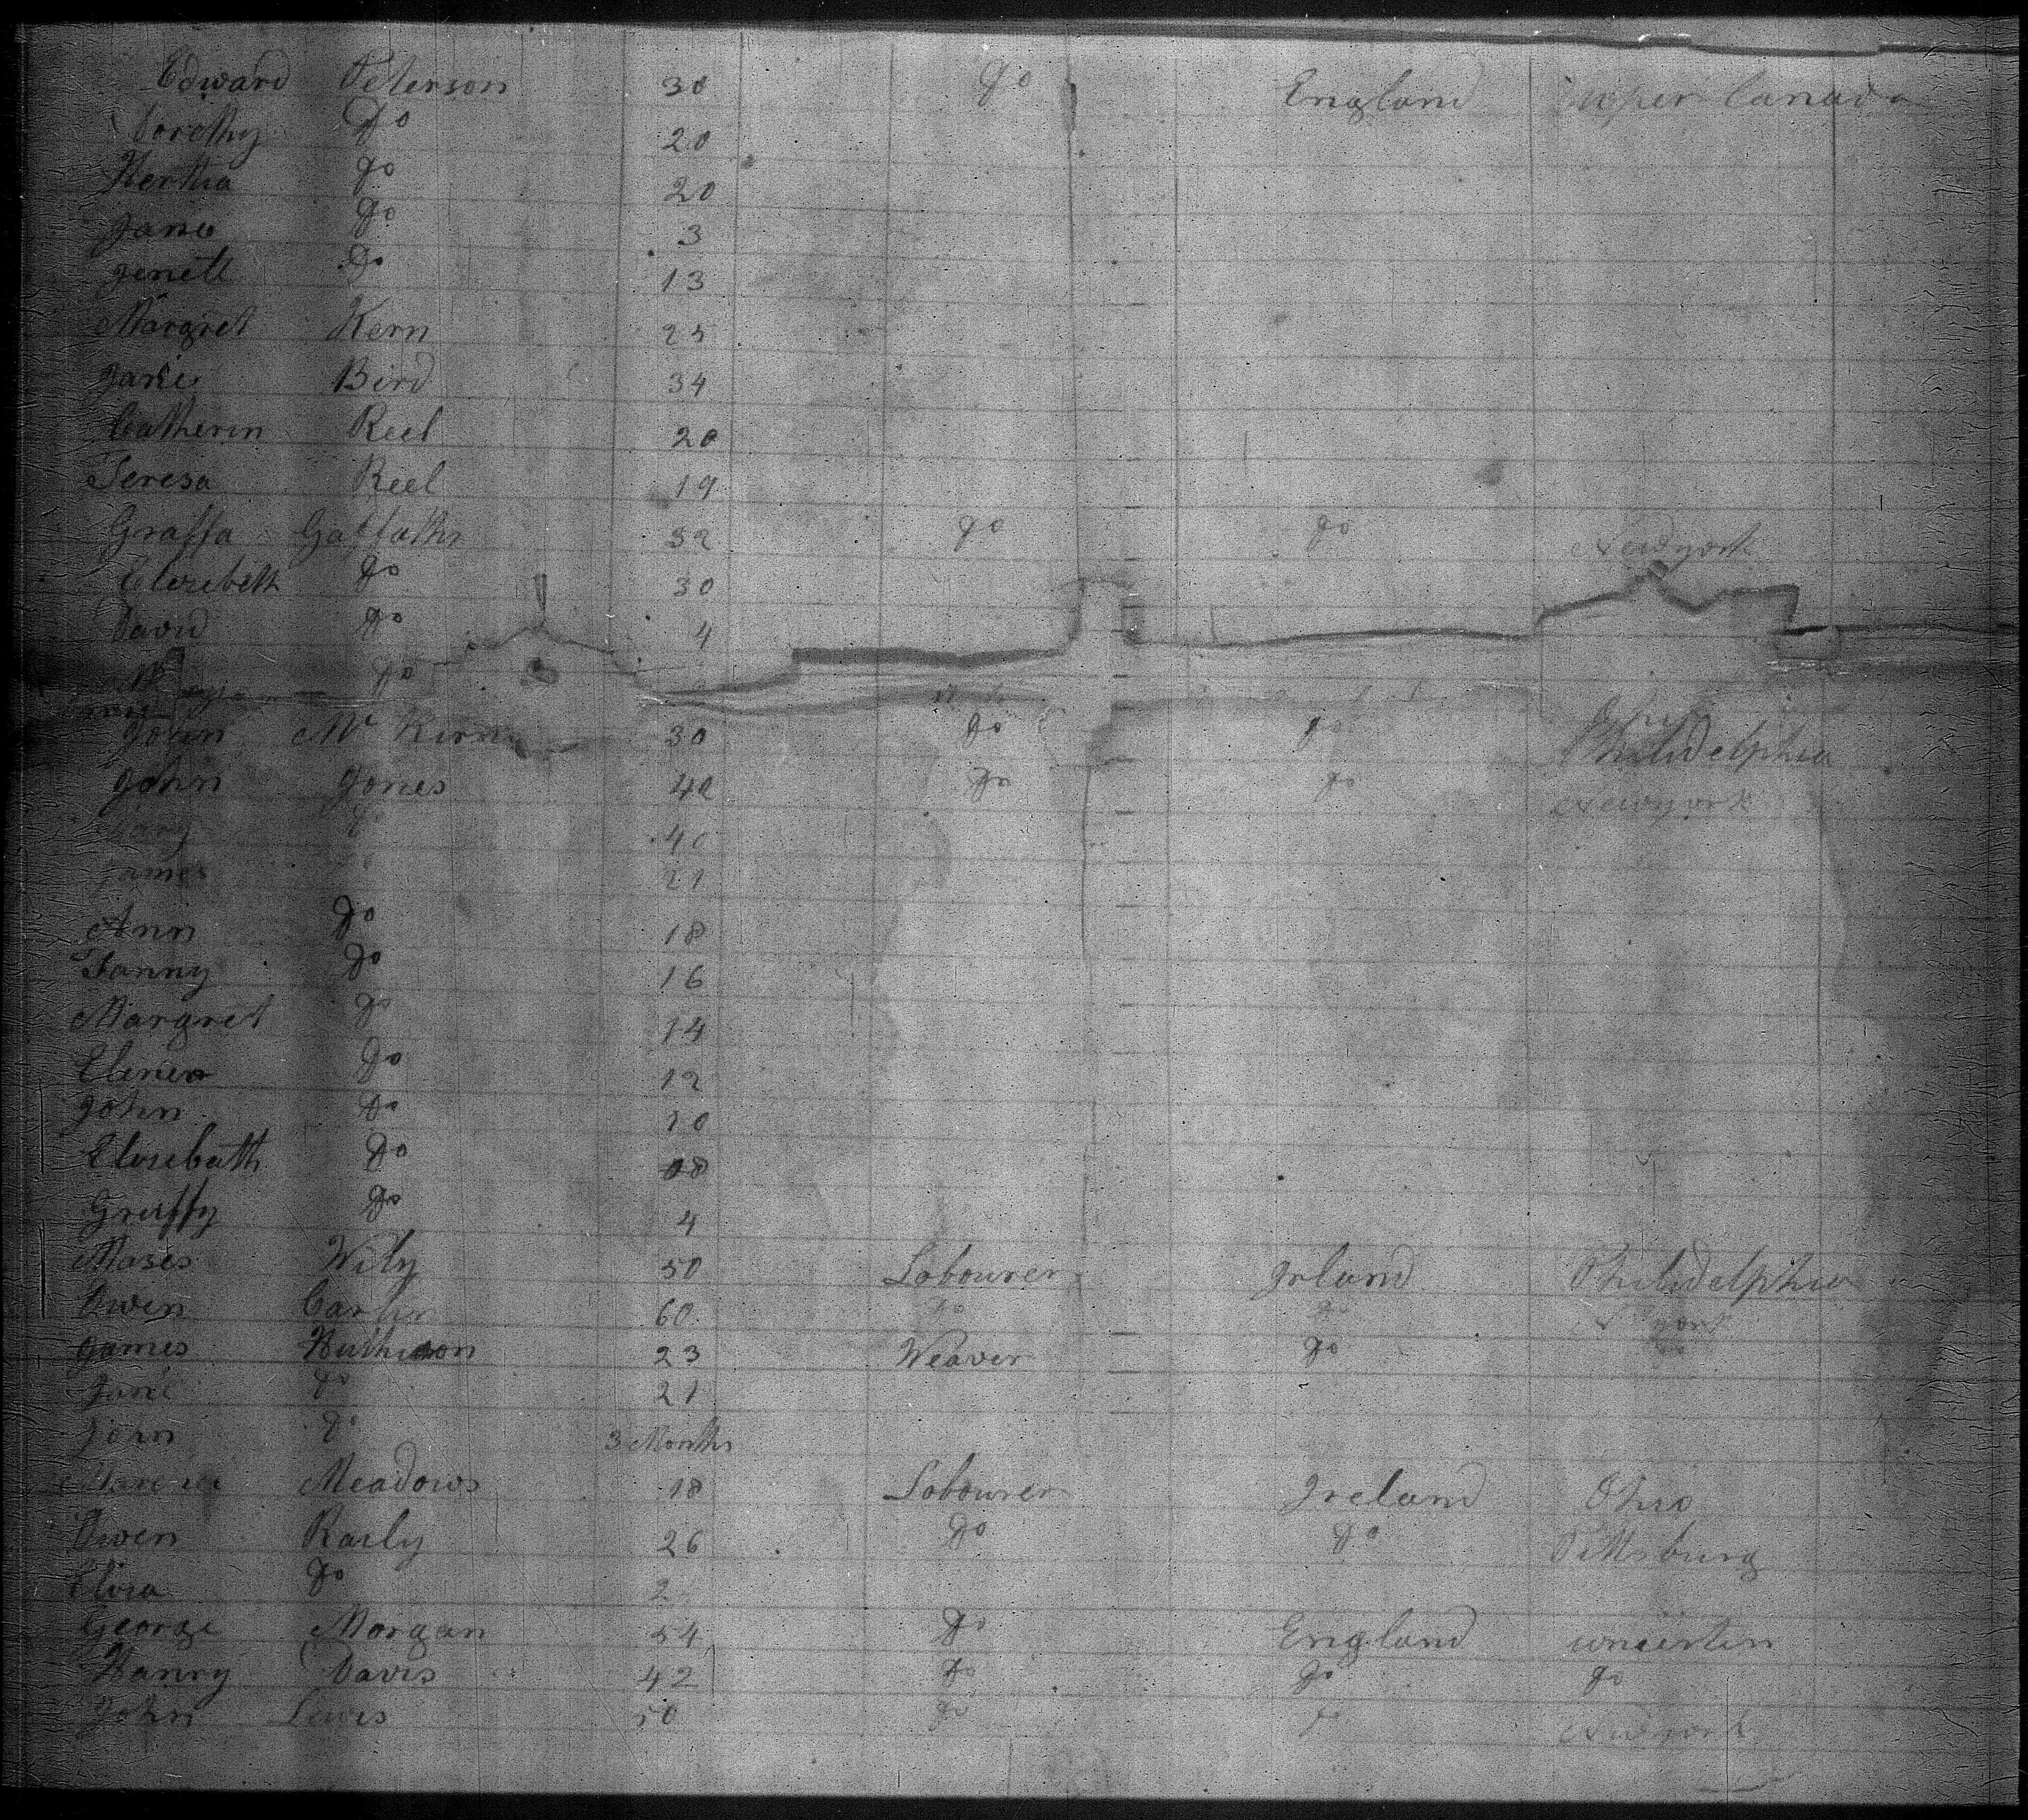 Edward Peterson 30 Do England upper Canada
Dorothy Do 20
Hertha Do 20
Jane Do 3
Jenett Do 13
Margret Kern 25
Jane Bird 34
Catherin Reel 20
Teresa Reel 19
Graffa 32 Do Do Newyork
Elezebeth Do 30
David Do 4
Do
John Mc 30 Do Do Philidelphia
John Jones 40 Do Do Newyork
Mary Do 40
James 21
Ann Do 18
Fanny Do 16
Margret Do 14
Elener Do 12
John Do 10
Elosebath Do 8
Gruffy Do 4
Moses Wily 50 Lobourer Irland Philidelphia
Owen 60 Do Do N york
James 23 Weaver Do
Jane Do 21
John Do 3 Months
Meadows 18 Lobourer Ireland Ohio
Owen Raily 26 Do Do Pittsburg
Eliza Do 2
George Morgan 54 Do England uncertin
Hanry Davis 42 Do Do Do
John Lewis 50 Do Do Newyork